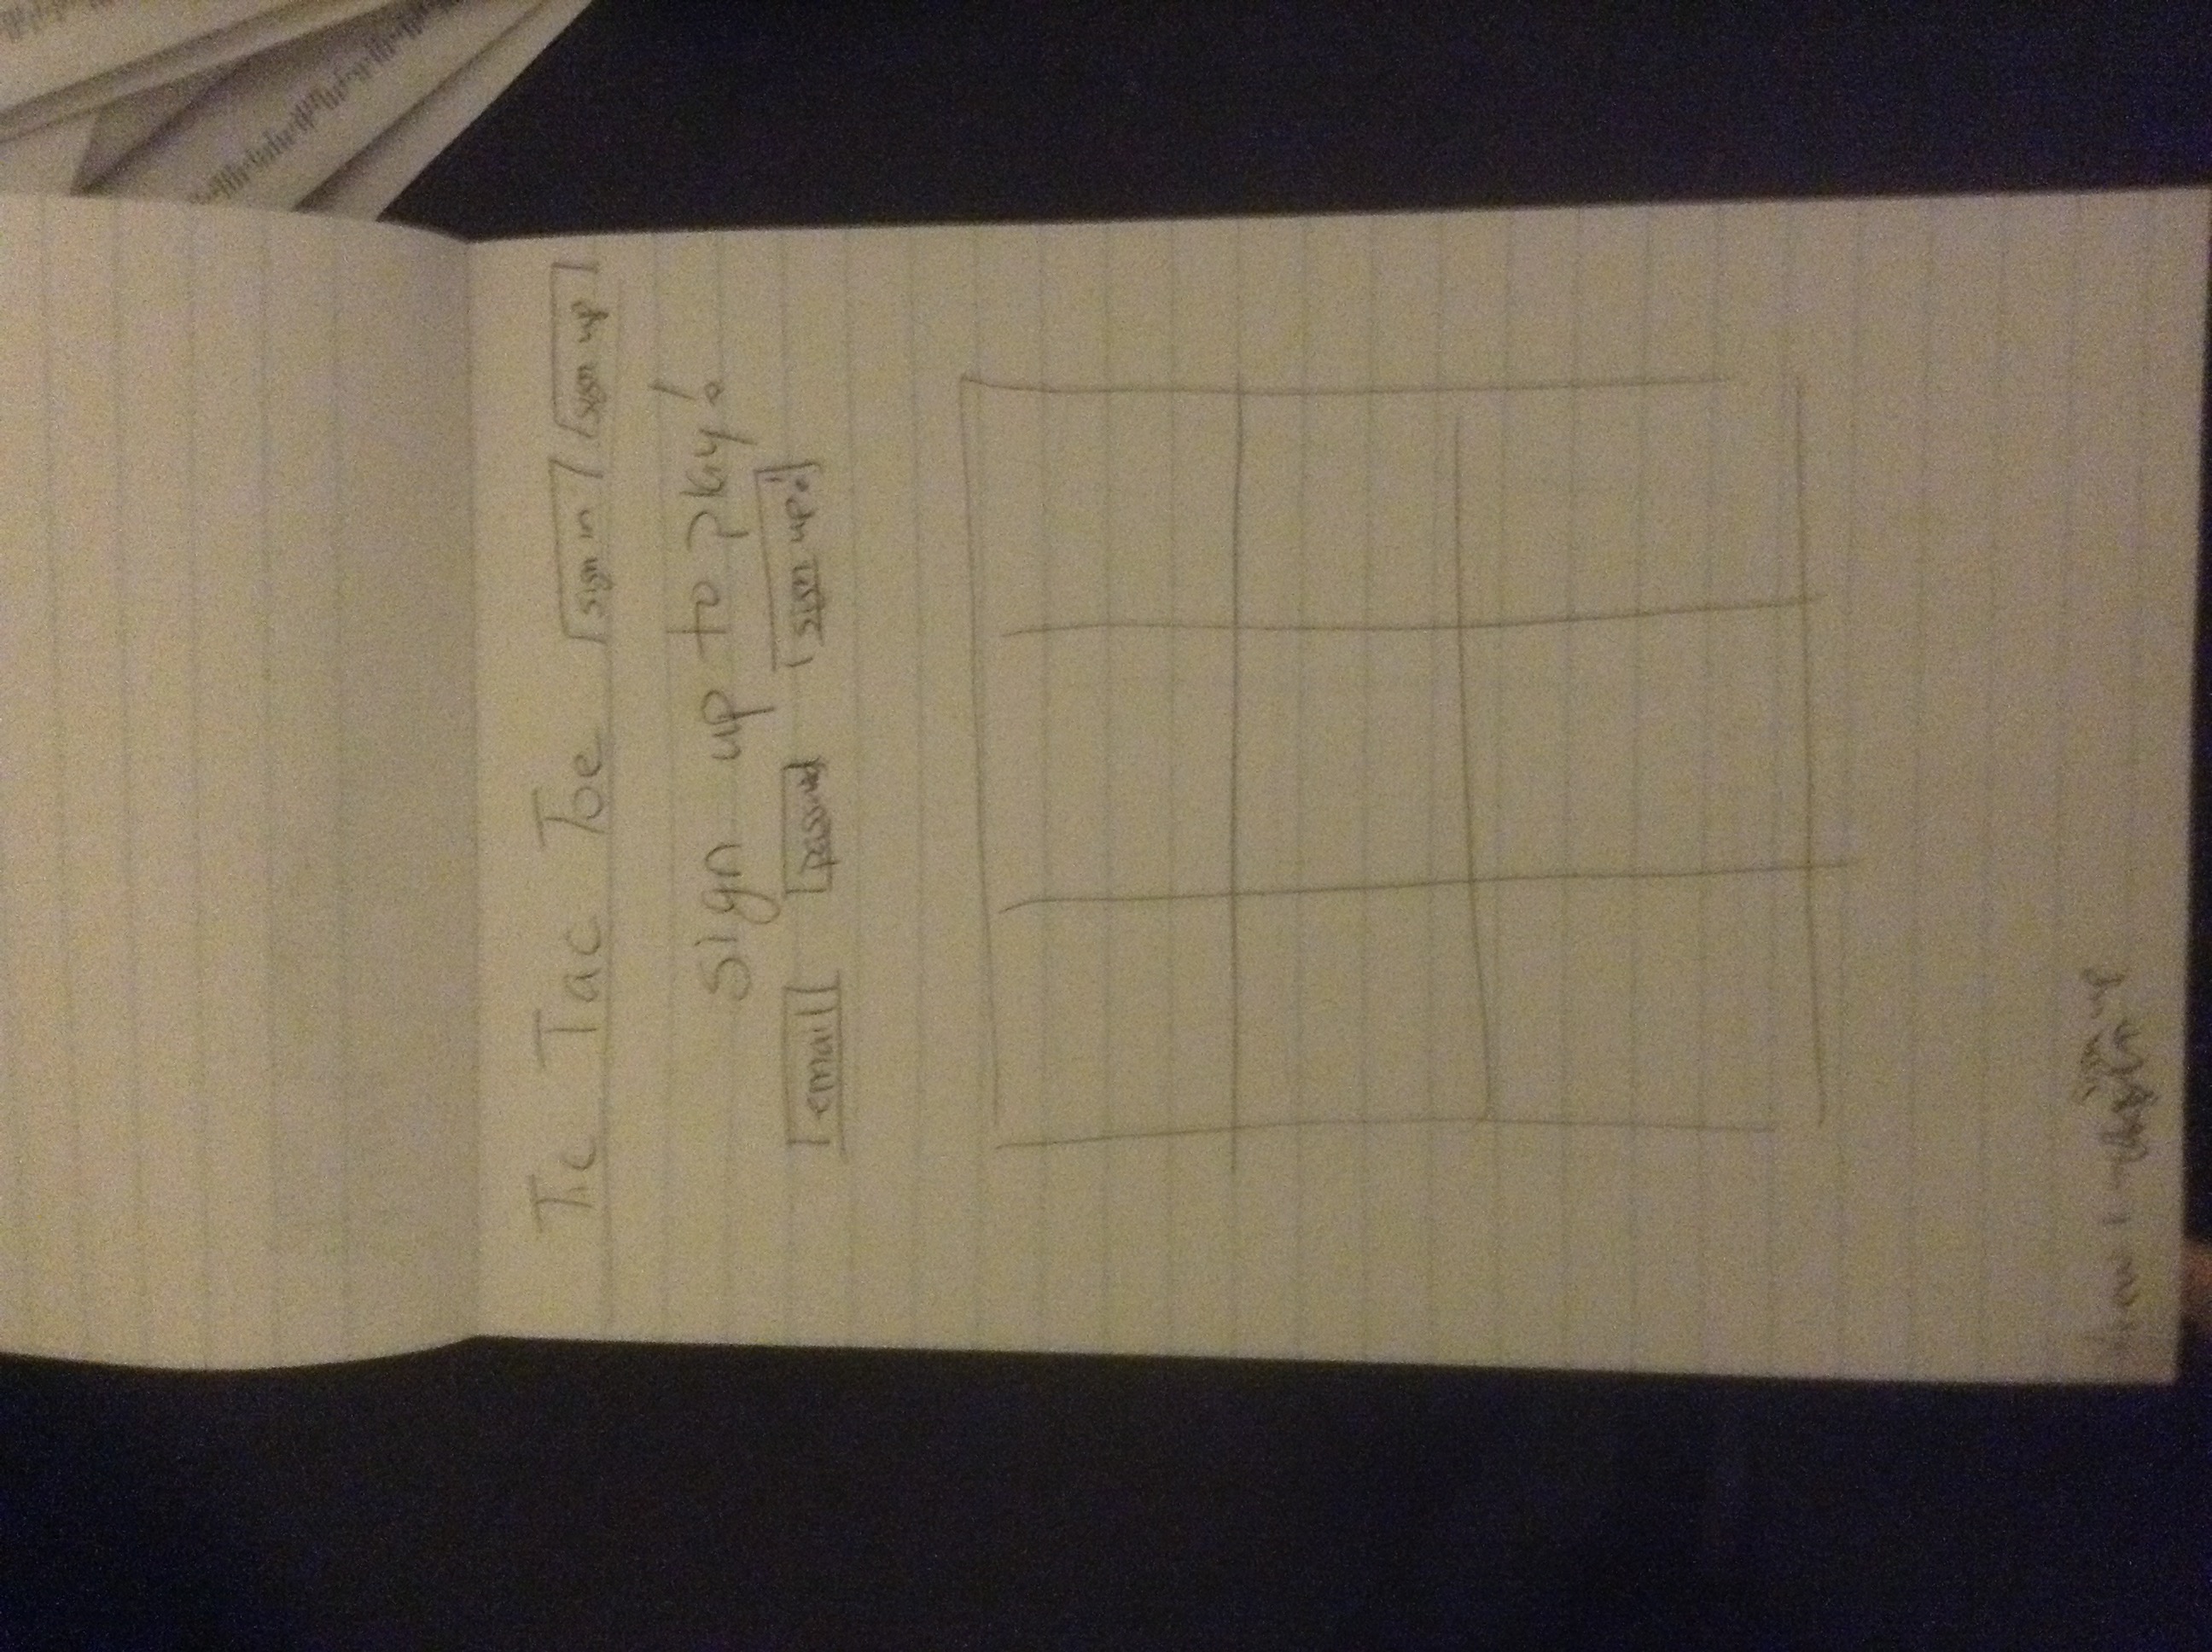 Tic Tac Toe sign in sign up
sign up to play!
email password sign up!
sign up
view 1 -